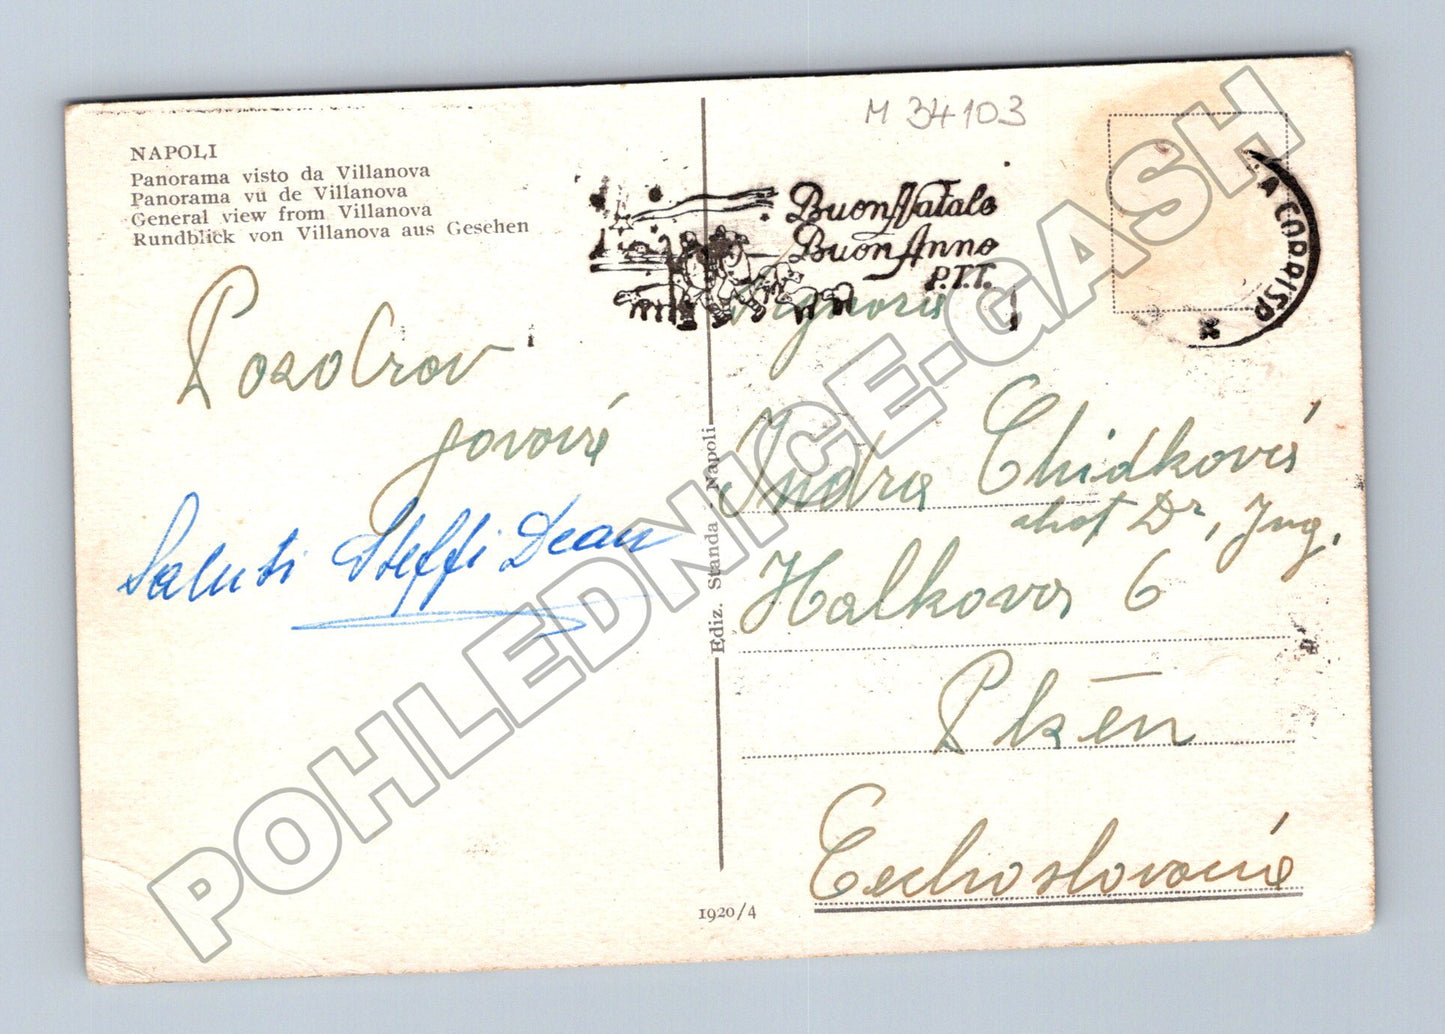 M 34103
NAPOLI
Panorama visto da Villanova
Panorama vu de Villanova
General view from Villanova
Rundblick von Villanova aus Gesehen
Buon Natale
Buon Anno
P.T.T.
A CORRISP.
Pozdrov
Saluti Steffi Dean
Ediz. Standa - Napoli
Signora
Indra Chidková
chot Dr, Ing.
Halkova 6
Plzen
Cechoslovacia
1920/4
POHLEDNICE-GASH